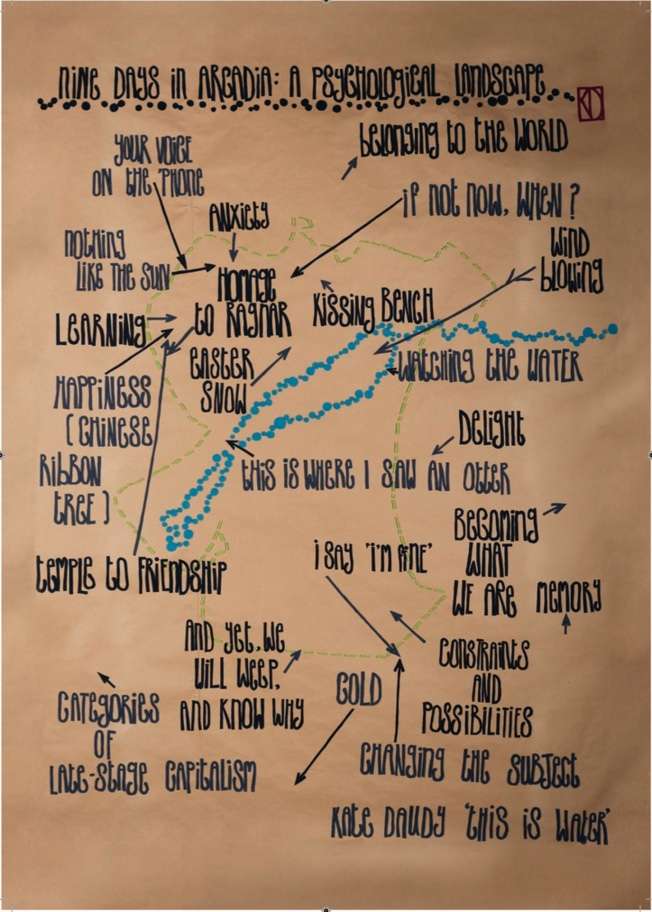 NINE DAYS IN ARCADIA: A PSYCHOLOGICAL LANDSCAPE
KD
BELONGING TO THE WORLD
YOUR VOICE
ON THE PHONE
IF NOT NOW, WHEN?
ANXIETY
NOTHING
LIKE THE SUN
WIND
BLOWING
HOMAGE
TO RAGNAR
KISSING BENCH
LEARNING
EASTER
SNOW
WATCHING THE WATER
HAPPINESS
(CHINESE
RIBBON
TREE)
DELIGHT
THIS IS WHERE I SAW AN OTTER
BECOMING
WHAT
WE ARE
MEMORY
I SAY 'I'M FINE'
TEMPLE TO FRIENDSHIP
AND YET, WE
WILL WEEP,
AND KNOW WHY
CONSTRAINTS
AND
POSSIBILITIES
GOLD
CATEGORIES
OF
LATE-STAGE CAPITALISM
CHANGING THE SUBJECT
KATE DAUDY 'THIS IS WATER'